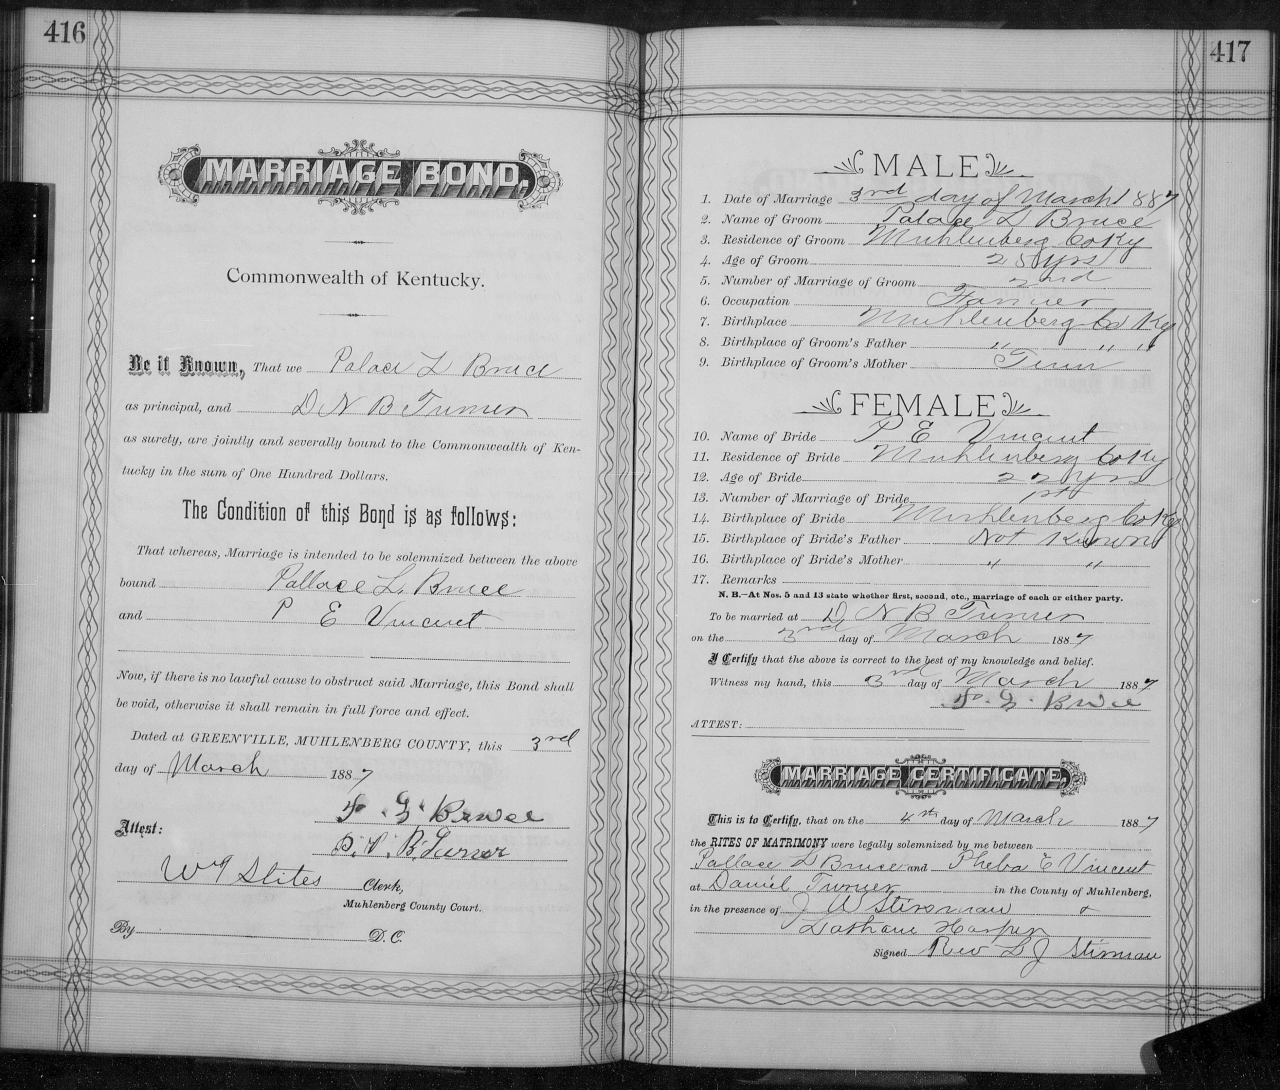 416
MARRIAGE BOND.
Commonwealth of Kentucky.
Be it Known, That we Palace L Bruce
as principal, and D N B Turner
as surety, are jointly and severally bound to the Commonwealth of Ken-
tucky in the sum of One Hundred Dollars.
The Condition of this Bond is as follows:
That whereas, Marriage is intended to be solemnized between the above
bound Pallace L. Bruce
and P E Vincent
Now, if there is no lawful cause to obstruct said Marriage, this Bond shall
be void, otherwise it shall remain in full force and effect.
Dated at GREENVILLE, MUHLENBERG COUNTY, this 3rd
day of March 1887
Attest:
D. N. B. Turner
Stites Clerk,
Muhlenberg County Court.
By D. C.
417
MALE
1. Date of Marriage 3rd day of March 1887
2. Name of Groom Palace L Bruce
3. Residence of Groom Muhlenberg Co Ky
4. Age of Groom 25 yrs
5. Number of Marriage of Groom 2nd
6. Occupation Farmer
7. Birthplace Muhlenberg Co Ky
8. Birthplace of Groom's Father " " "
9. Birthplace of Groom's Mother Tenn
FEMALE
10. Name of Bride P E Vincent
11. Residence of Bride Muhlenberg Co Ky
12. Age of Bride 22 yrs
13. Number of Marriage of Bride 1st
14. Birthplace of Bride Muhlenberg Co Ky
15. Birthplace of Bride's Father Not Known
16. Birthplace of Bride's Mother " "
17. Remarks
N. B.—At Nos. 5 and 13 state whether first, second, etc., marriage of each or either party.
To be married at D N B Turner
on the 3rd day of March 1887
I Certify that the above is correct to the best of my knowledge and belief.
Witness my hand, this 3rd day of March 1887
ATTEST:
MARRIAGE CERTIFICATE.
This is to Certify, that on the 4th day of March 1887
the RITES OF MATRIMONY were legally solemnized by me between
Pallace L Bruce and Pheba E Vincent
at Daniel Turner in the County of Muhlenberg,
in the presence of J W Stirsman &
Harper
Signed Rev L J Stirsman